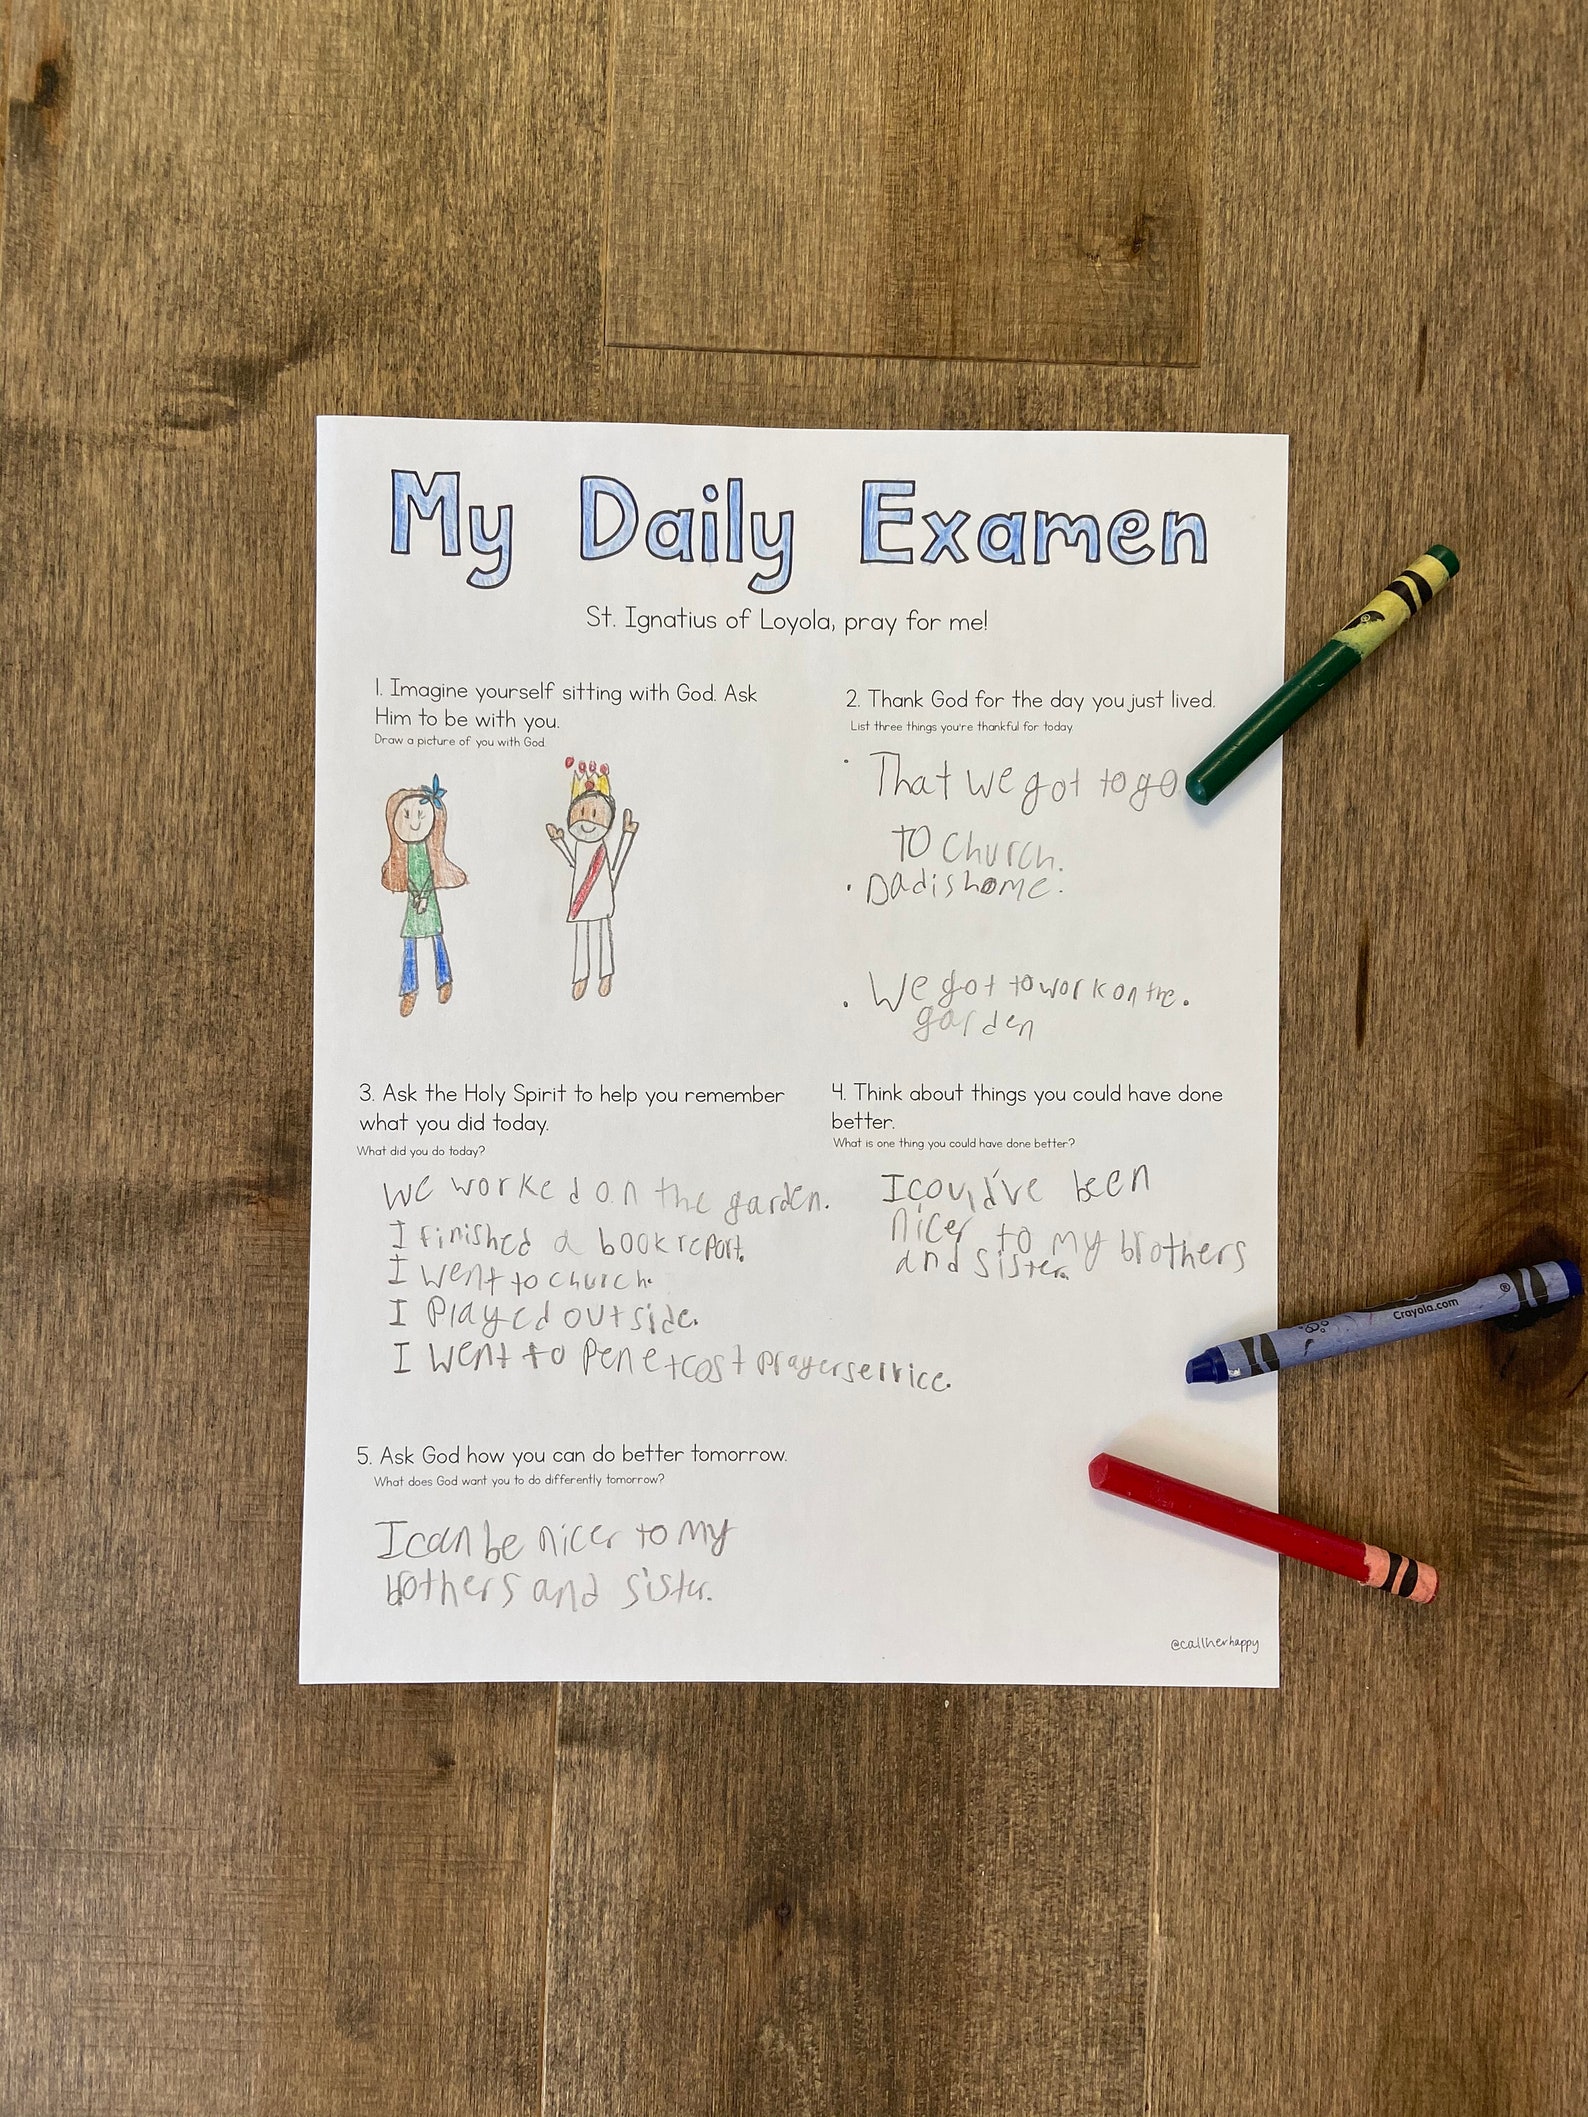 My Daily Examen
St. Ignatius of Loyola, pray for me!
1. Imagine yourself sitting with God. Ask
Him to be with you.
Draw a picture of you with God.
2. Thank God for the day you just lived.
List three things you're thankful for today.
• That we got to go
to church.
• Dad is home.
• We got to work on the.
garden
3. Ask the Holy Spirit to help you remember
what you did today.
What did you do today?
We worked on the garden.
I finished a book report.
I went to church.
I played outside.
I went to Penetcost prayer service.
4. Think about things you could have done
better.
What is one thing you could have done better?
I could've been
nicer to my brothers
and sister.
5. Ask God how you can do better tomorrow.
What does God want you to do differently tomorrow?
I can be nicer to my
brothers and sister.
@callherhappy
Crayola.com ®